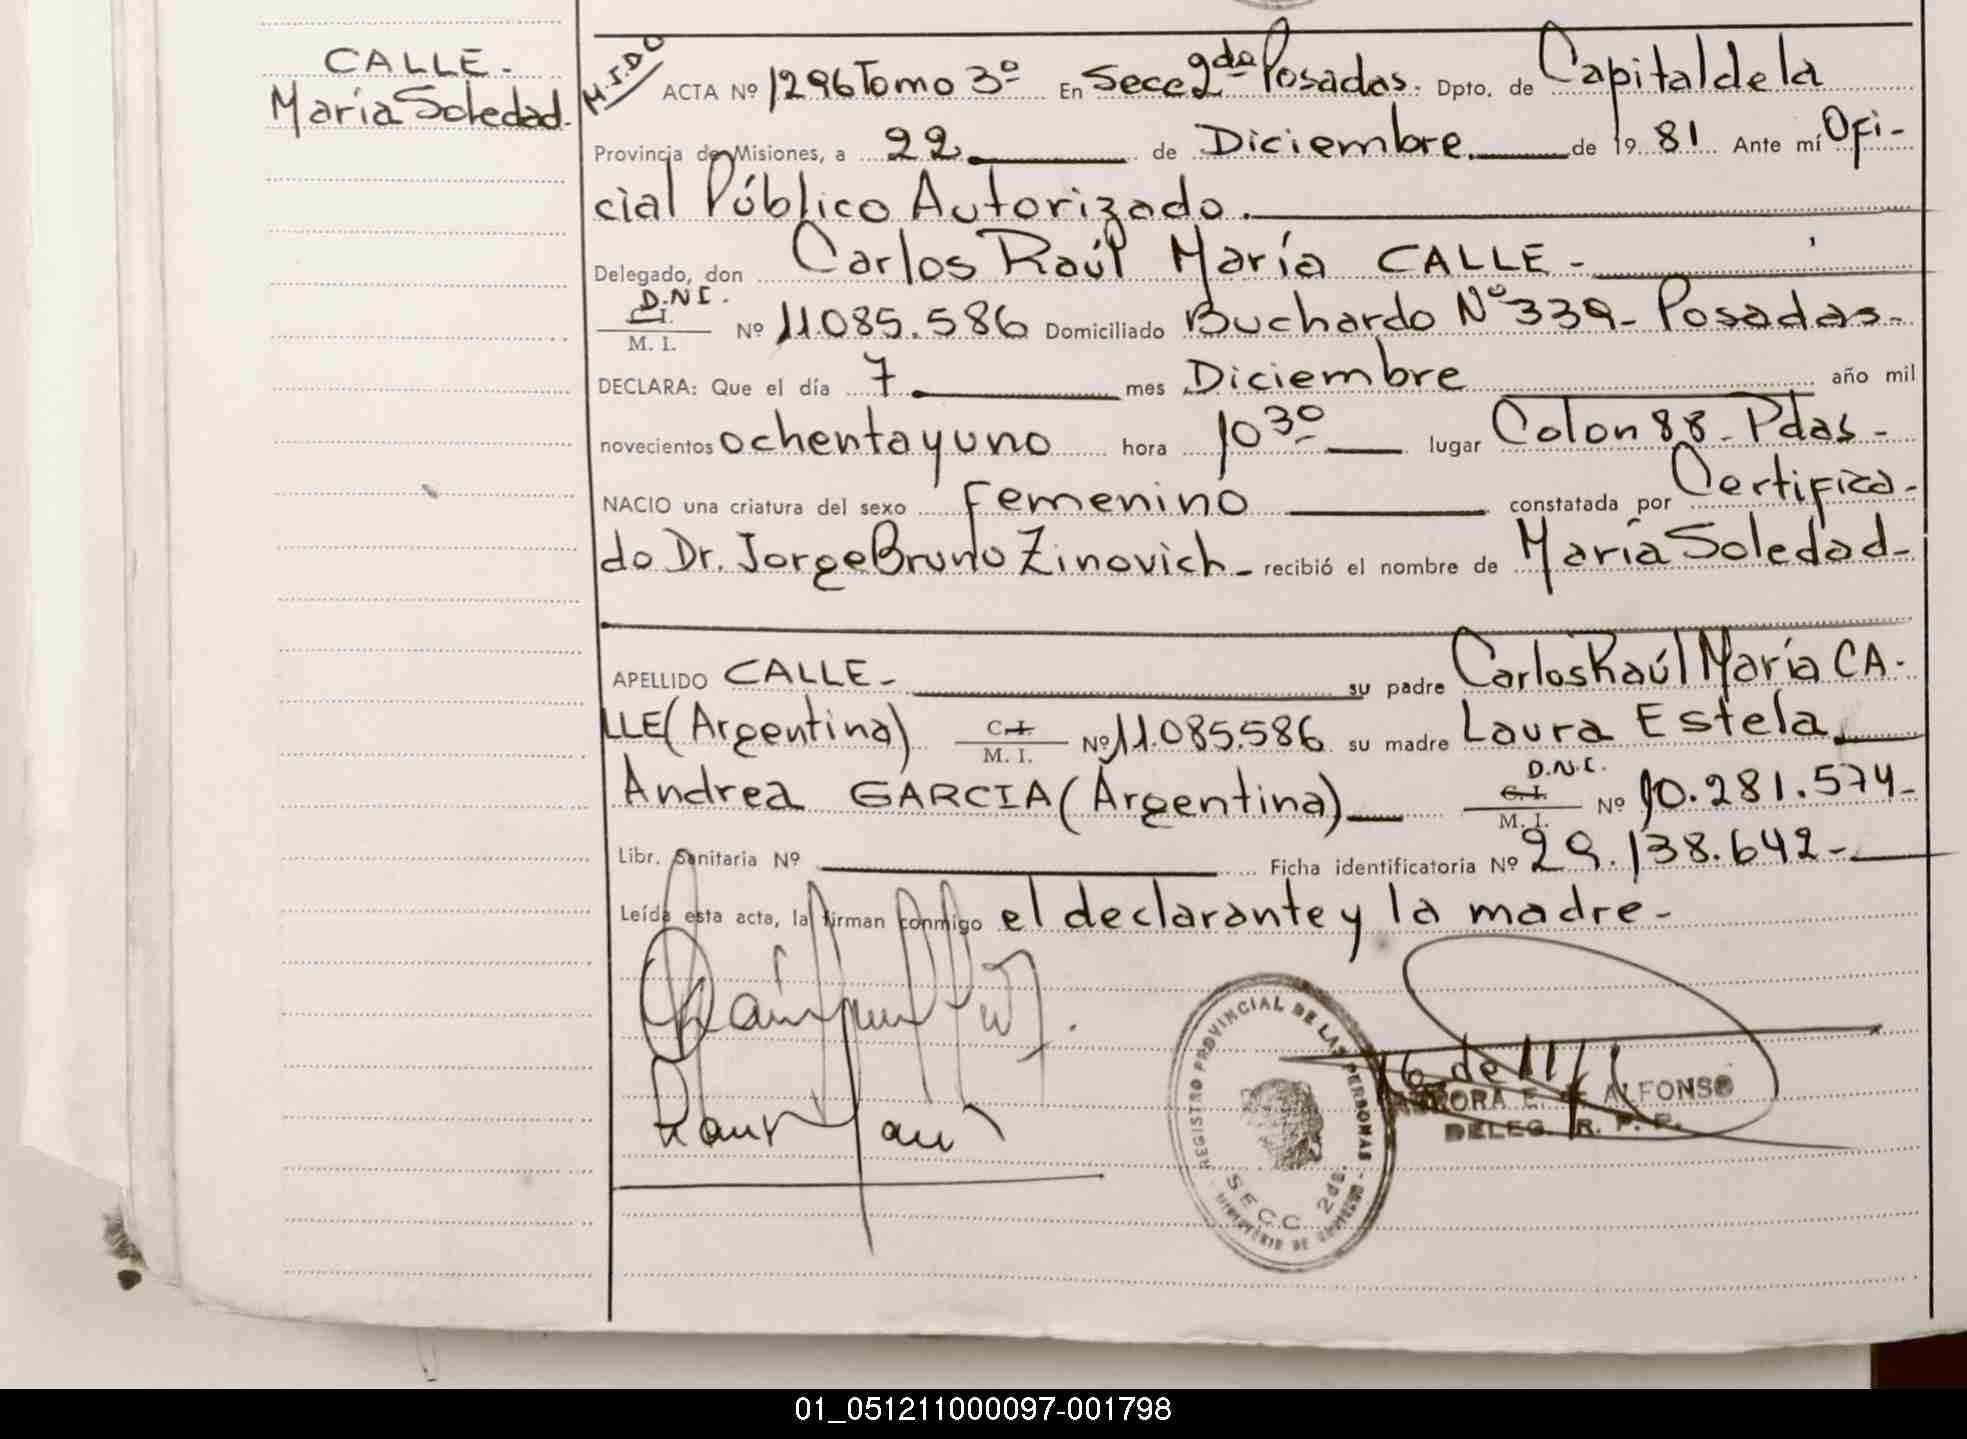 CALLE.
María Soledad.
M.I.D.O
ACTA Nº 1296 Tomo 3º En Secc 2da Posadas. Dpto. de Capital de la
Provincia de Misiones, a 22 de Diciembre de 1981 Ante mí Ofi-
cial Público Autorizado.
Delegado, don Carlos Raúl María CALLE-
D.N.I.
C.I.
M. I. Nº 11.085.586 Domiciliado Buchardo Nº 339- Posadas-
DECLARA: Que el día 7 mes Diciembre año mil
novecientos ochenta y uno hora 10 30 lugar Colon 88- Pdas-
NACIO una criatura del sexo Femenino constatada por Certifica-
do Dr. Jorge Bruno Zinovich- recibió el nombre de María Soledad-
APELLIDO CALLE- su padre Carlos Raúl María CA-
LLE (Argentina) C.I. M. I. Nº 11.085.586 su madre Laura Estela
Andrea GARCIA (Argentina) D.N.I. C.I. M. I. Nº 10.281.574-
Libr. Sanitaria Nº Ficha identificatoria Nº 29.138.642-
Leída esta acta, la firman conmigo el declarante y la madre-
REGISTRO PROVINCIAL DE LAS PERSONAS - MINISTERIO DE GOBIERNO
SECC 2da.
16 de 11
E. ALFONSO
DELEG. R. P. P.
01_051211000097-001798